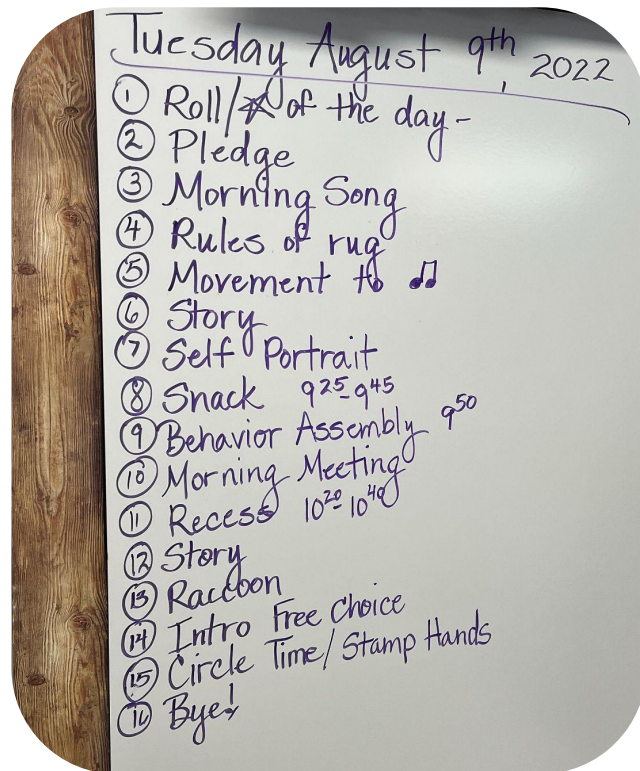 Tuesday August 9th, 2022
① Roll/☆ of the day-
② Pledge
③ Morning Song
④ Rules of rug
⑤ Movement to ♫
⑥ Story
⑦ Self Portrait
⑧ Snack 9 25-9 45
⑨ Behavior Assembly 9 50
⑩ Morning Meeting
⑪ Recess 10 20-10 40
⑫ Story
⑬ Raccoon
⑭ Intro Free Choice
⑮ Circle Time/Stamp Hands
⑯ Bye!